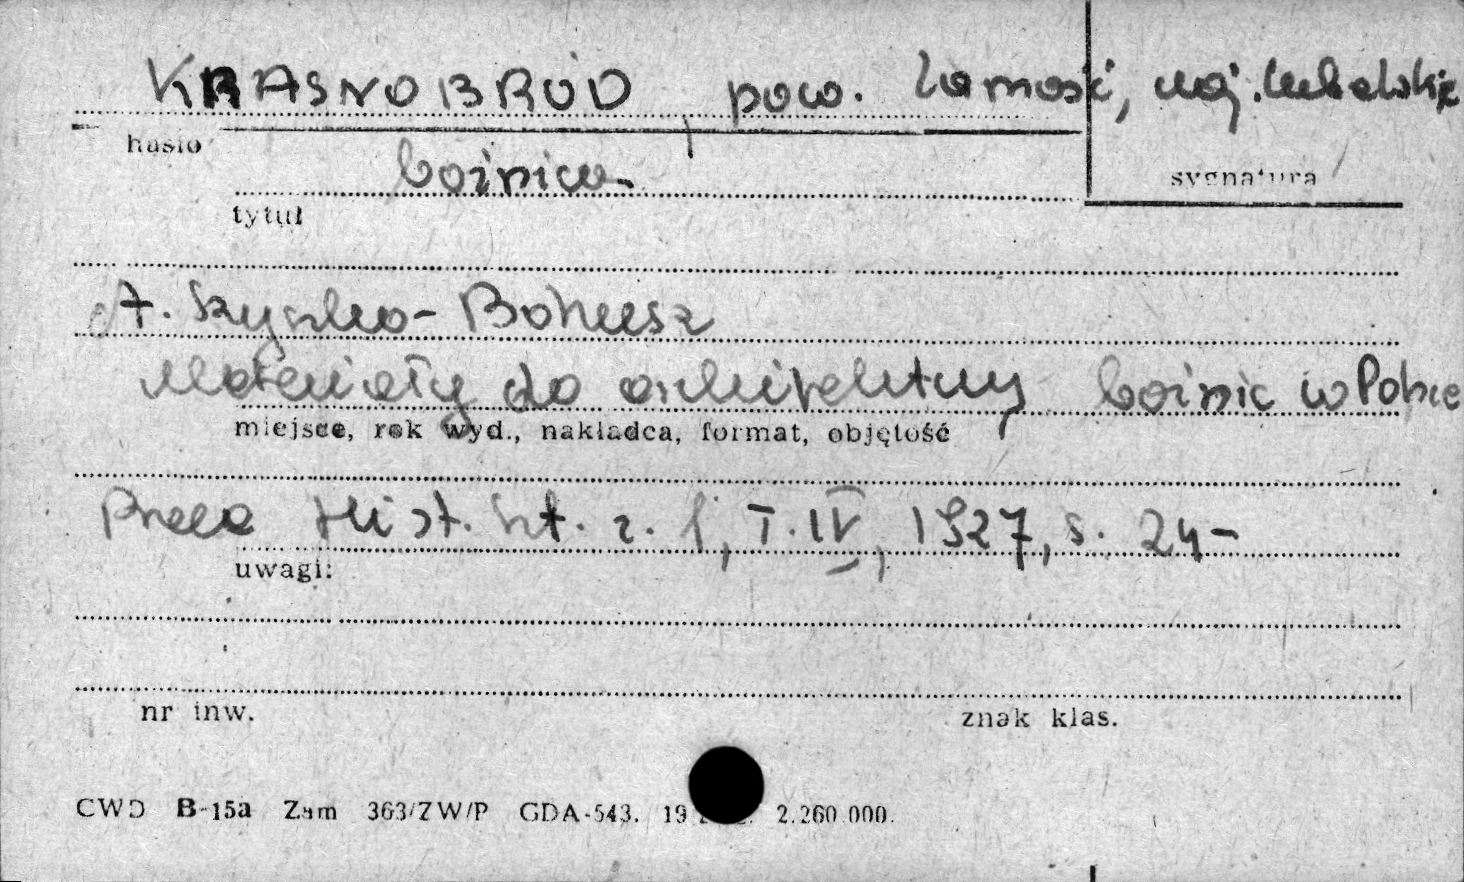 KRASNOBRÓD pow. Zamość, woj. lubelskie
hasło
bóżnica
sygnatura
tytuł
A. Szyszko-Bohusz
Materiały do architektury bóżnic w Polsce
miejsce, rok wyd., nakładca, format, objętość
Prace Hist. Szt. z. 1, T. IV, 1927, s. 24-
uwagi:
nr inw.
znak klas.
CWD B-15a Zam 363/ZW/P GDA-543. 19 2.260.000.